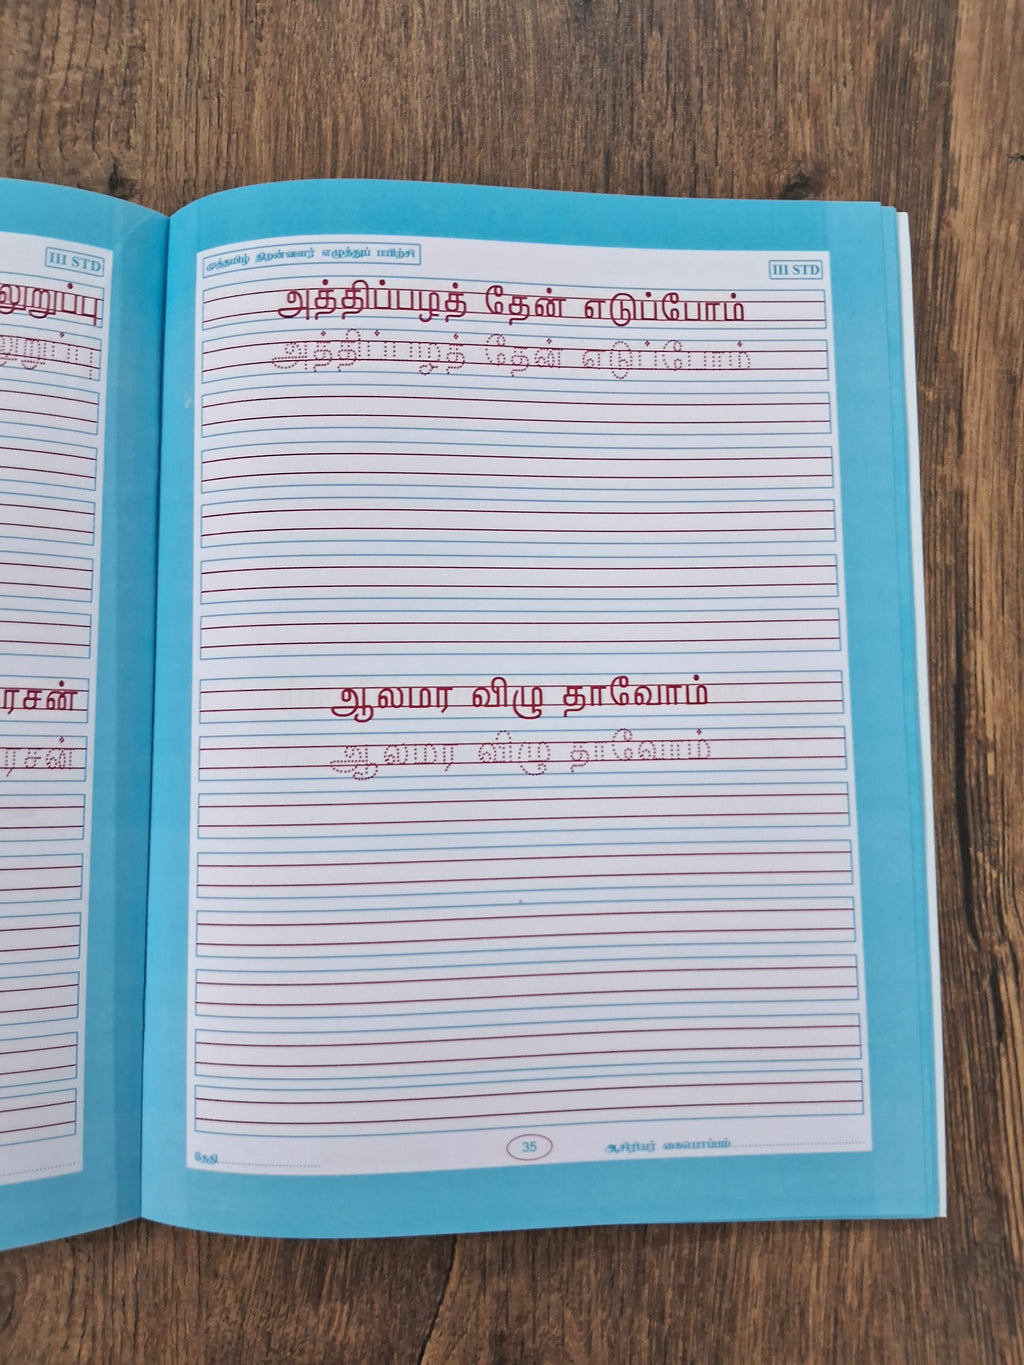 III STD
லுறுப்பு
லுறுப்பு
ரசன்
ரசன்
முத்தமிழ் திறன்வளர் எழுத்துப் பயிற்சி III STD
அத்திப்பழத் தேன் எடுப்போம்
அத்திப்பழத் தேன் எடுப்போம்
ஆலமர விழு தாவோம்
ஆலமர விழு தாவோம்
தேதி........................ 35 ஆசிரியர் கையொப்பம்........................